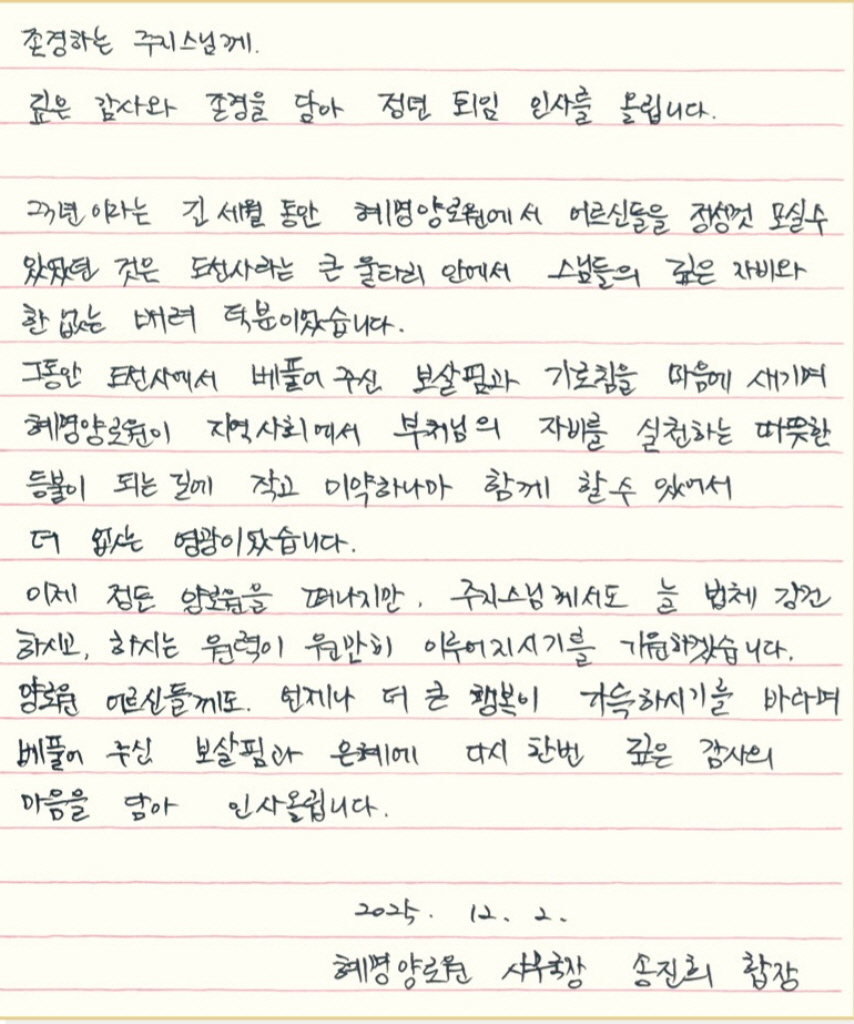 존경하는 주지스님께.
깊은 감사와 존경을 담아 정년 퇴임 인사를 올립니다.
23년이라는 긴 세월 동안 혜명양로원에서 어르신들을 정성껏 모실수
있었던 것은 도선사라는 큰 울타리 안에서 스님들의 깊은 자비와
한 없는 배려 덕분이었습니다.
그동안 도선사에서 베풀어 주신 보살핌과 가르침을 마음에 새기며
혜명양로원이 지역사회에서 부처님의 자비를 실천하는 따뜻한
등불이 되는 길에 작고 미약하나마 함께 할 수 있어서
더 없는 영광이었습니다.
이제 정든 양로원을 떠나지만, 주지스님께서도 늘 법체 강건
하시고, 하시는 원력이 원만히 이루어지시기를 기원하겠습니다.
양로원 어르신들께도. 언제나 더 큰 행복이 가득하시기를 바라며
베풀어 주신 보살핌과 은혜에 다시 한번 깊은 감사의
마음을 담아 인사올립니다.
2025. 12. 2.
혜명양로원 사무국장 송진희 합장